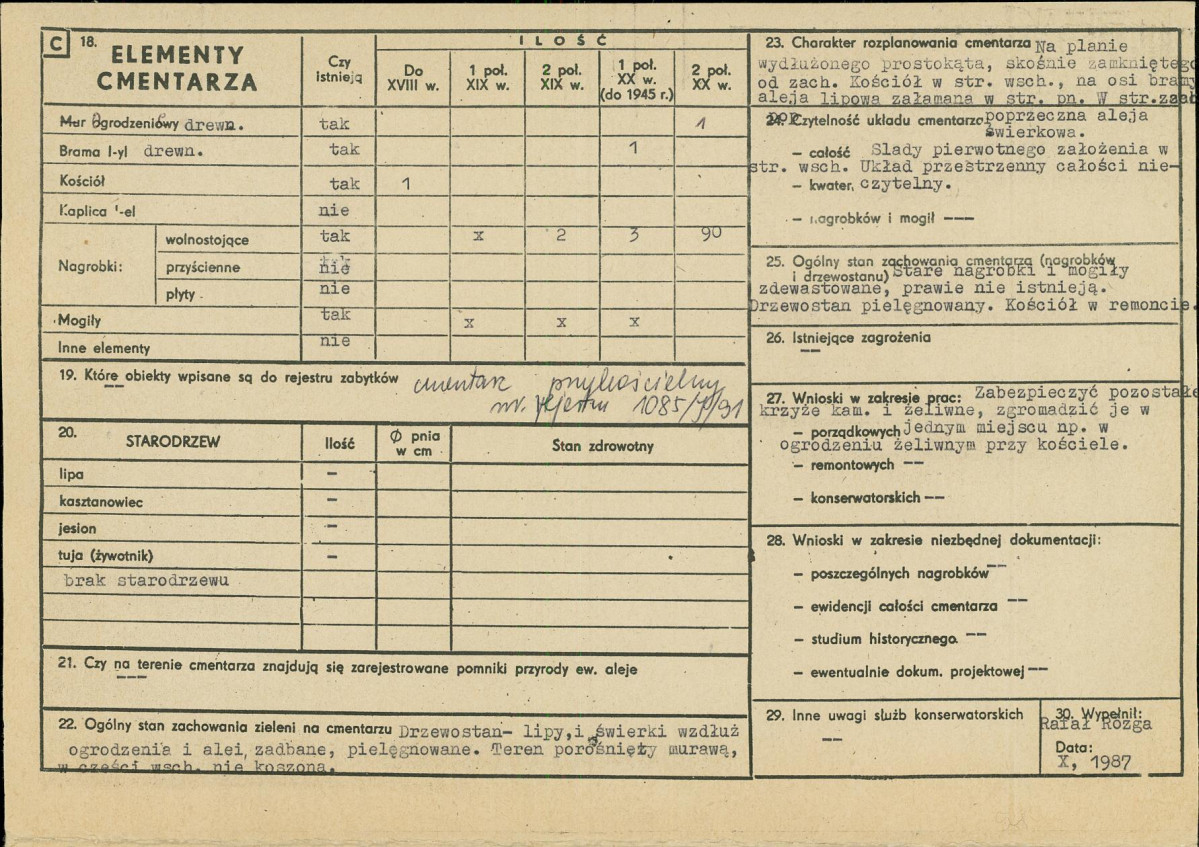 C 18. ELEMENTY CMENTARZA
Czy istnieją
ILOŚĆ
Do XVIII w.
1 poł. XIX w.
2 poł. XIX w.
1 poł. XX w. (do 1945 r.)
2 poł. XX w.
Mur Ogrodzeniowy drewn. tak 1
Brama I-yl drewn. tak 1
Kościół tak 1
Kaplica '-el nie
Nagrobki:
wolnostojące tak x 2 3 90
przyścienne nie
płyty nie
Mogiły tak x x x
Inne elementy nie
19. Które obiekty wpisane są do rejestru zabytków cmentarz przykościelny
--
nr. rejestru 1085/P/91
20. STARODRZEW
Ilość
Ø pnia w cm
Stan zdrowotny
lipa –
kasztanowiec –
jesion –
tuja (żywotnik) –
brak starodrzewu
21. Czy na terenie cmentarza znajdują się zarejestrowane pomniki przyrody ew. aleje
---
22. Ogólny stan zachowania zieleni na cmentarzu Drzewostan- lipy,i świerki wzdłuż
ogrodzenia i alei, zadbane, pielęgnowane. Teren porośnięty murawą,
w części wsch. nie koszona.
23. Charakter rozplanowania cmentarza Na planie
wydłużonego prostokąta, skośnie zamkniętego
od zach. Kościół w str. wsch., na osi bramy
aleja lipowa załamana w str. pn. W str.zach
pop poprzeczna aleja
24. Czytelność układu cmentarza
świerkowa.
– całość Slady pierwotnego założenia w
str. wsch. Układ przestrzenny całości nie-
– kwater, czytelny.
– nagrobków i mogił ---
25. Ogólny stan zachowania cmentarza (nagrobków
i drzewostanu) Stare nagrobki i mogiły
zdewastowane, prawie nie istnieją.
Drzewostan pielęgnowany. Kościół w remoncie.
26. Istniejące zagrożenia
--
27. Wnioski w zakresie prac: Zabezpieczyć pozostałe
krzyże kam. i żeliwne, zgromadzić je w
– porządkowych jednym miejscu np. w
ogrodzeniu żeliwnym przy kościele.
– remontowych --
– konserwatorskich --
28. Wnioski w zakresie niezbędnej dokumentacji:
– poszczególnych nagrobków --
– ewidencji całości cmentarza --
– studium historycznego. --
– ewentualnie dokum. projektowej --
29. Inne uwagi służb konserwatorskich
--
30. Wypełnił:
Rafał Rozga
Data:
X, 1987